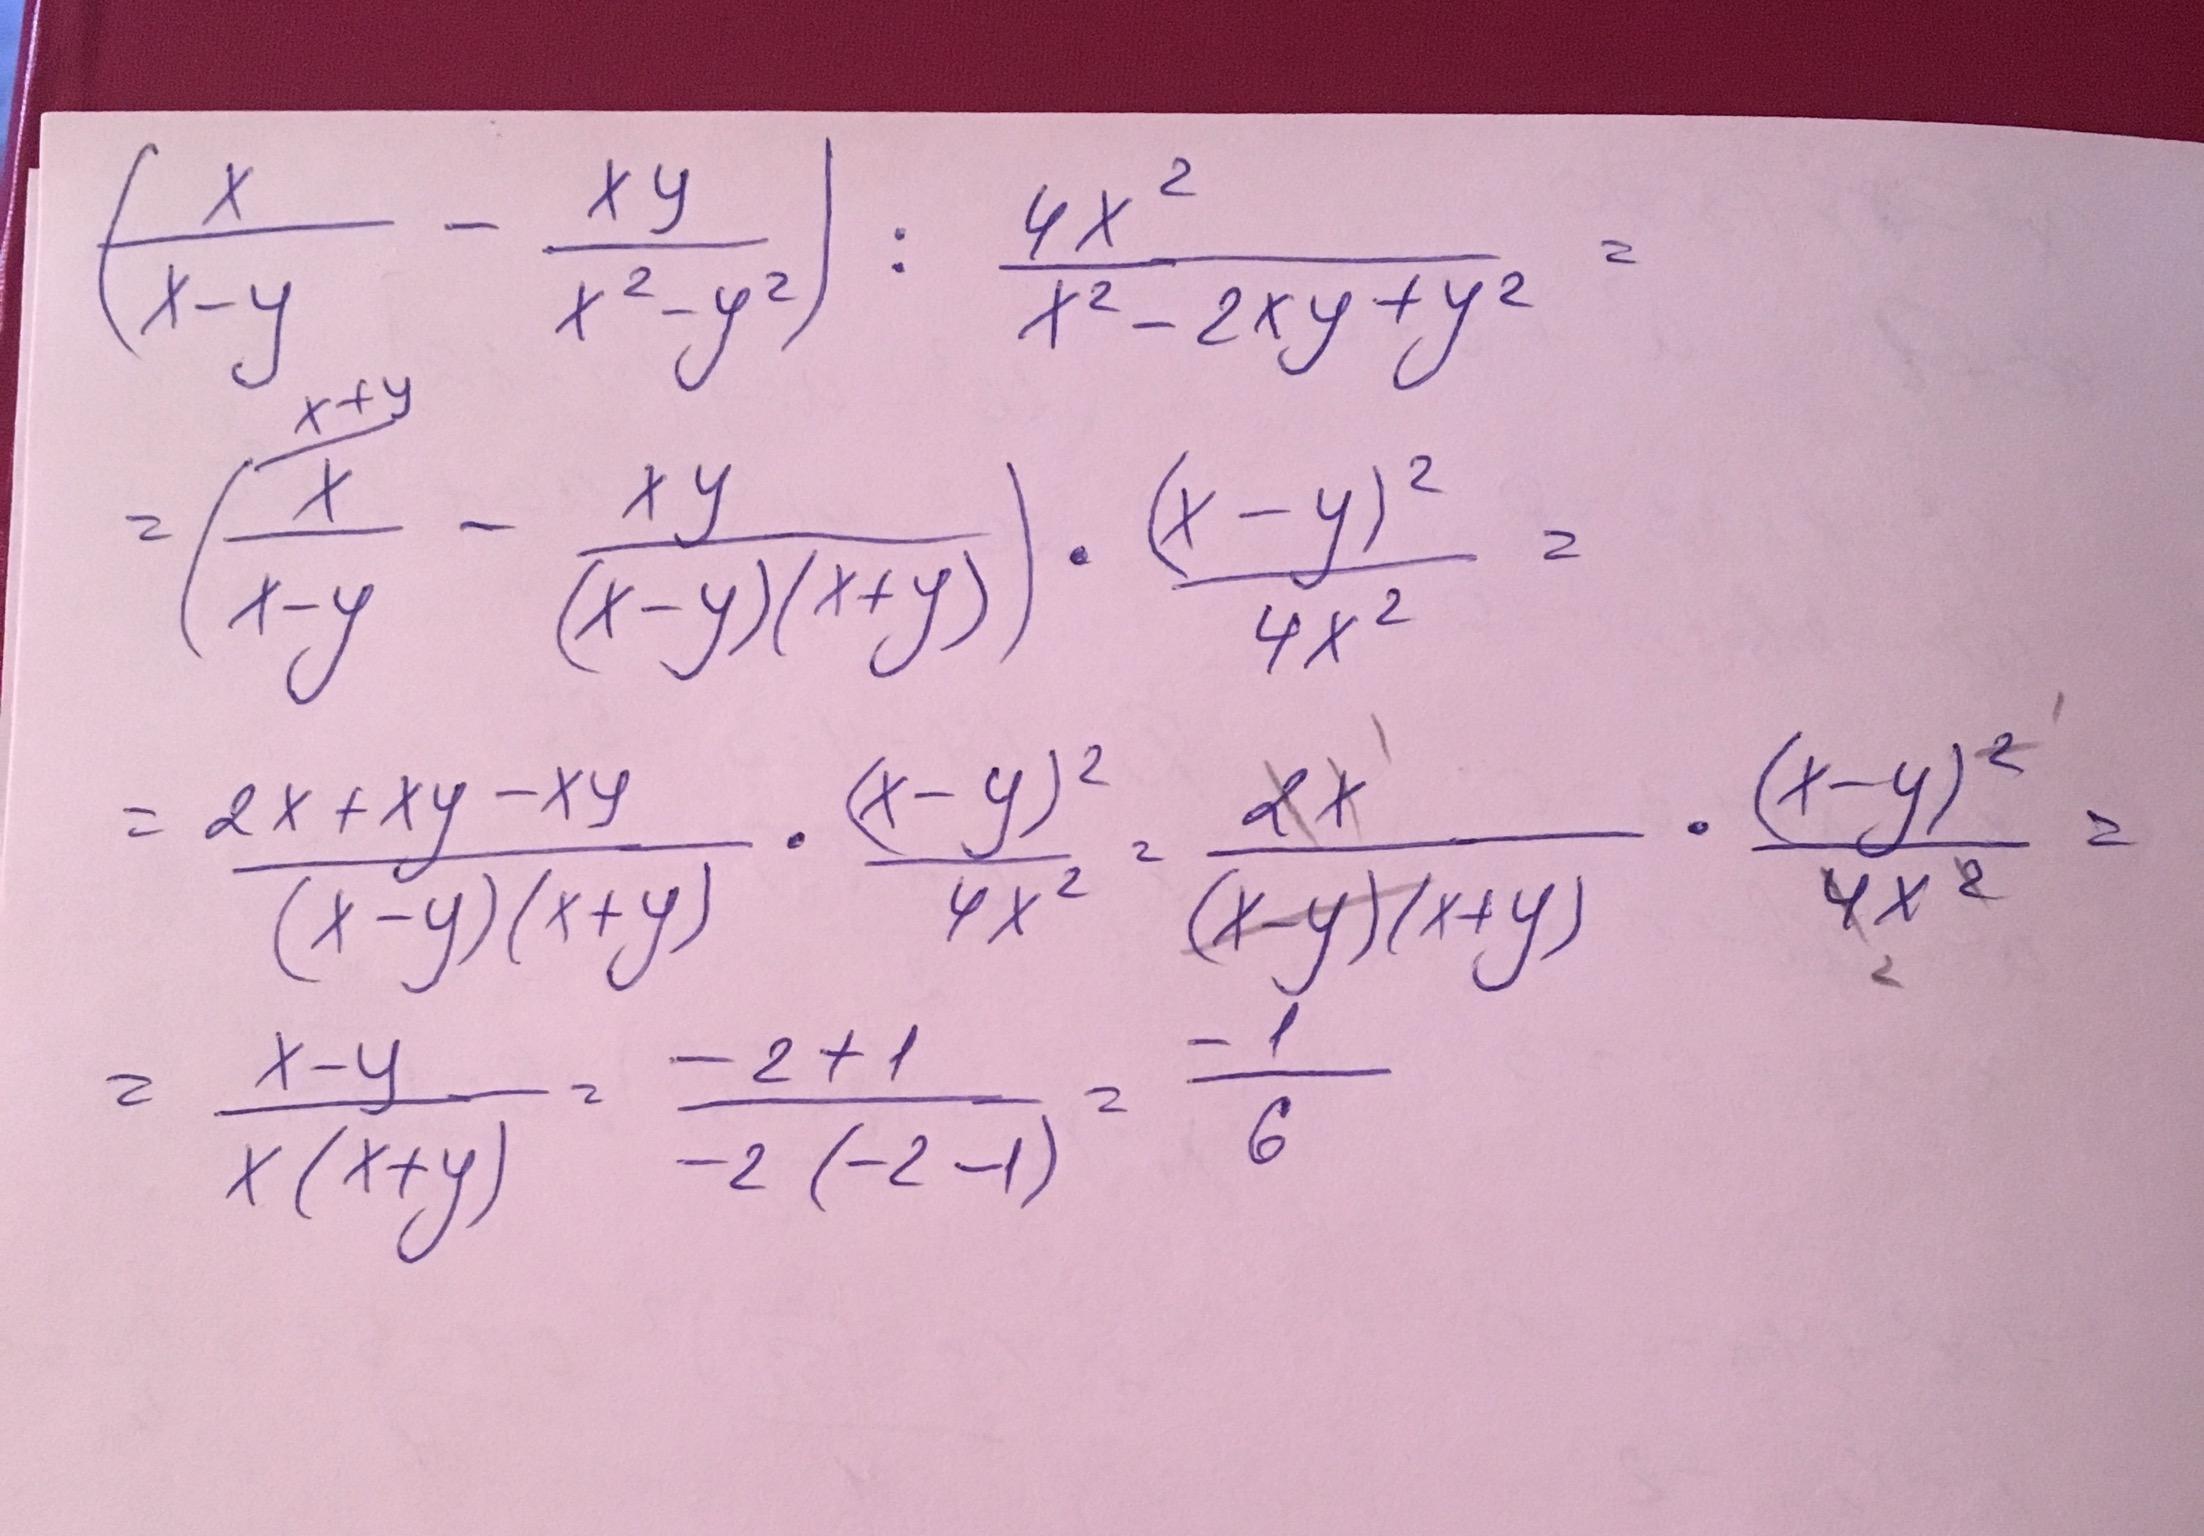 (x/(x-y) - xy/(x²-y²)) : 4x²/(x²-2xy+y²) =
x+y
= (x/(x-y) - xy/((x-y)(x+y))) · (x-y)²/4x² =
= (2x+xy-xy)/((x-y)(x+y)) · (x-y)²/4x² = 2x ¹/((x-y)(x+y)) · (x-y)² ¹/4x² ₂ =
= (x-y)/(x(x+y)) = (-2+1)/(-2(-2-1)) = -1/6